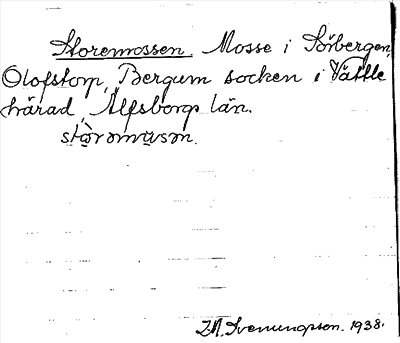 Storemossen. Mosse i Sörbergen,
Olofstorp, Bergum socken i Vättle
härad, Älfsborgs län.
storomusən.
Svenungsson. 1938.